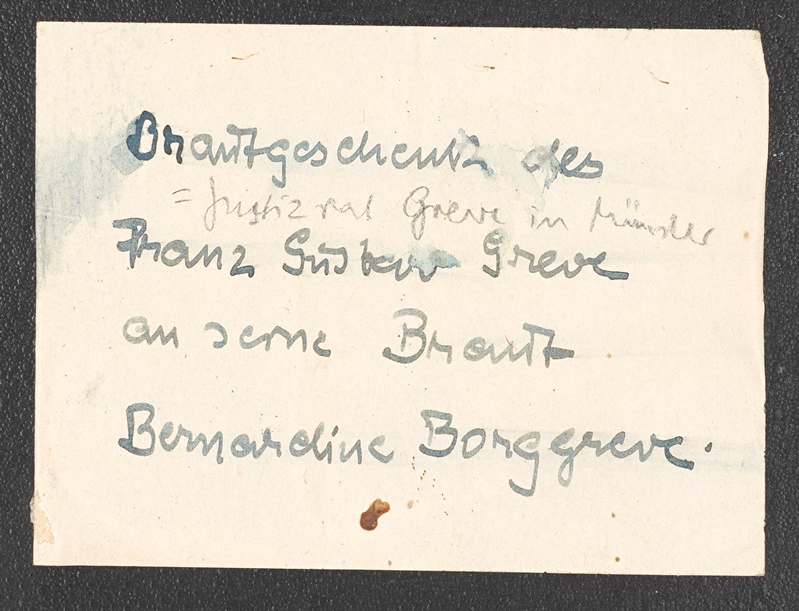 Brautgeschenk des
= Justizrat Greve in Münster
Franz Gustav Greve
an seine Braut
Bernardine Borggreve.